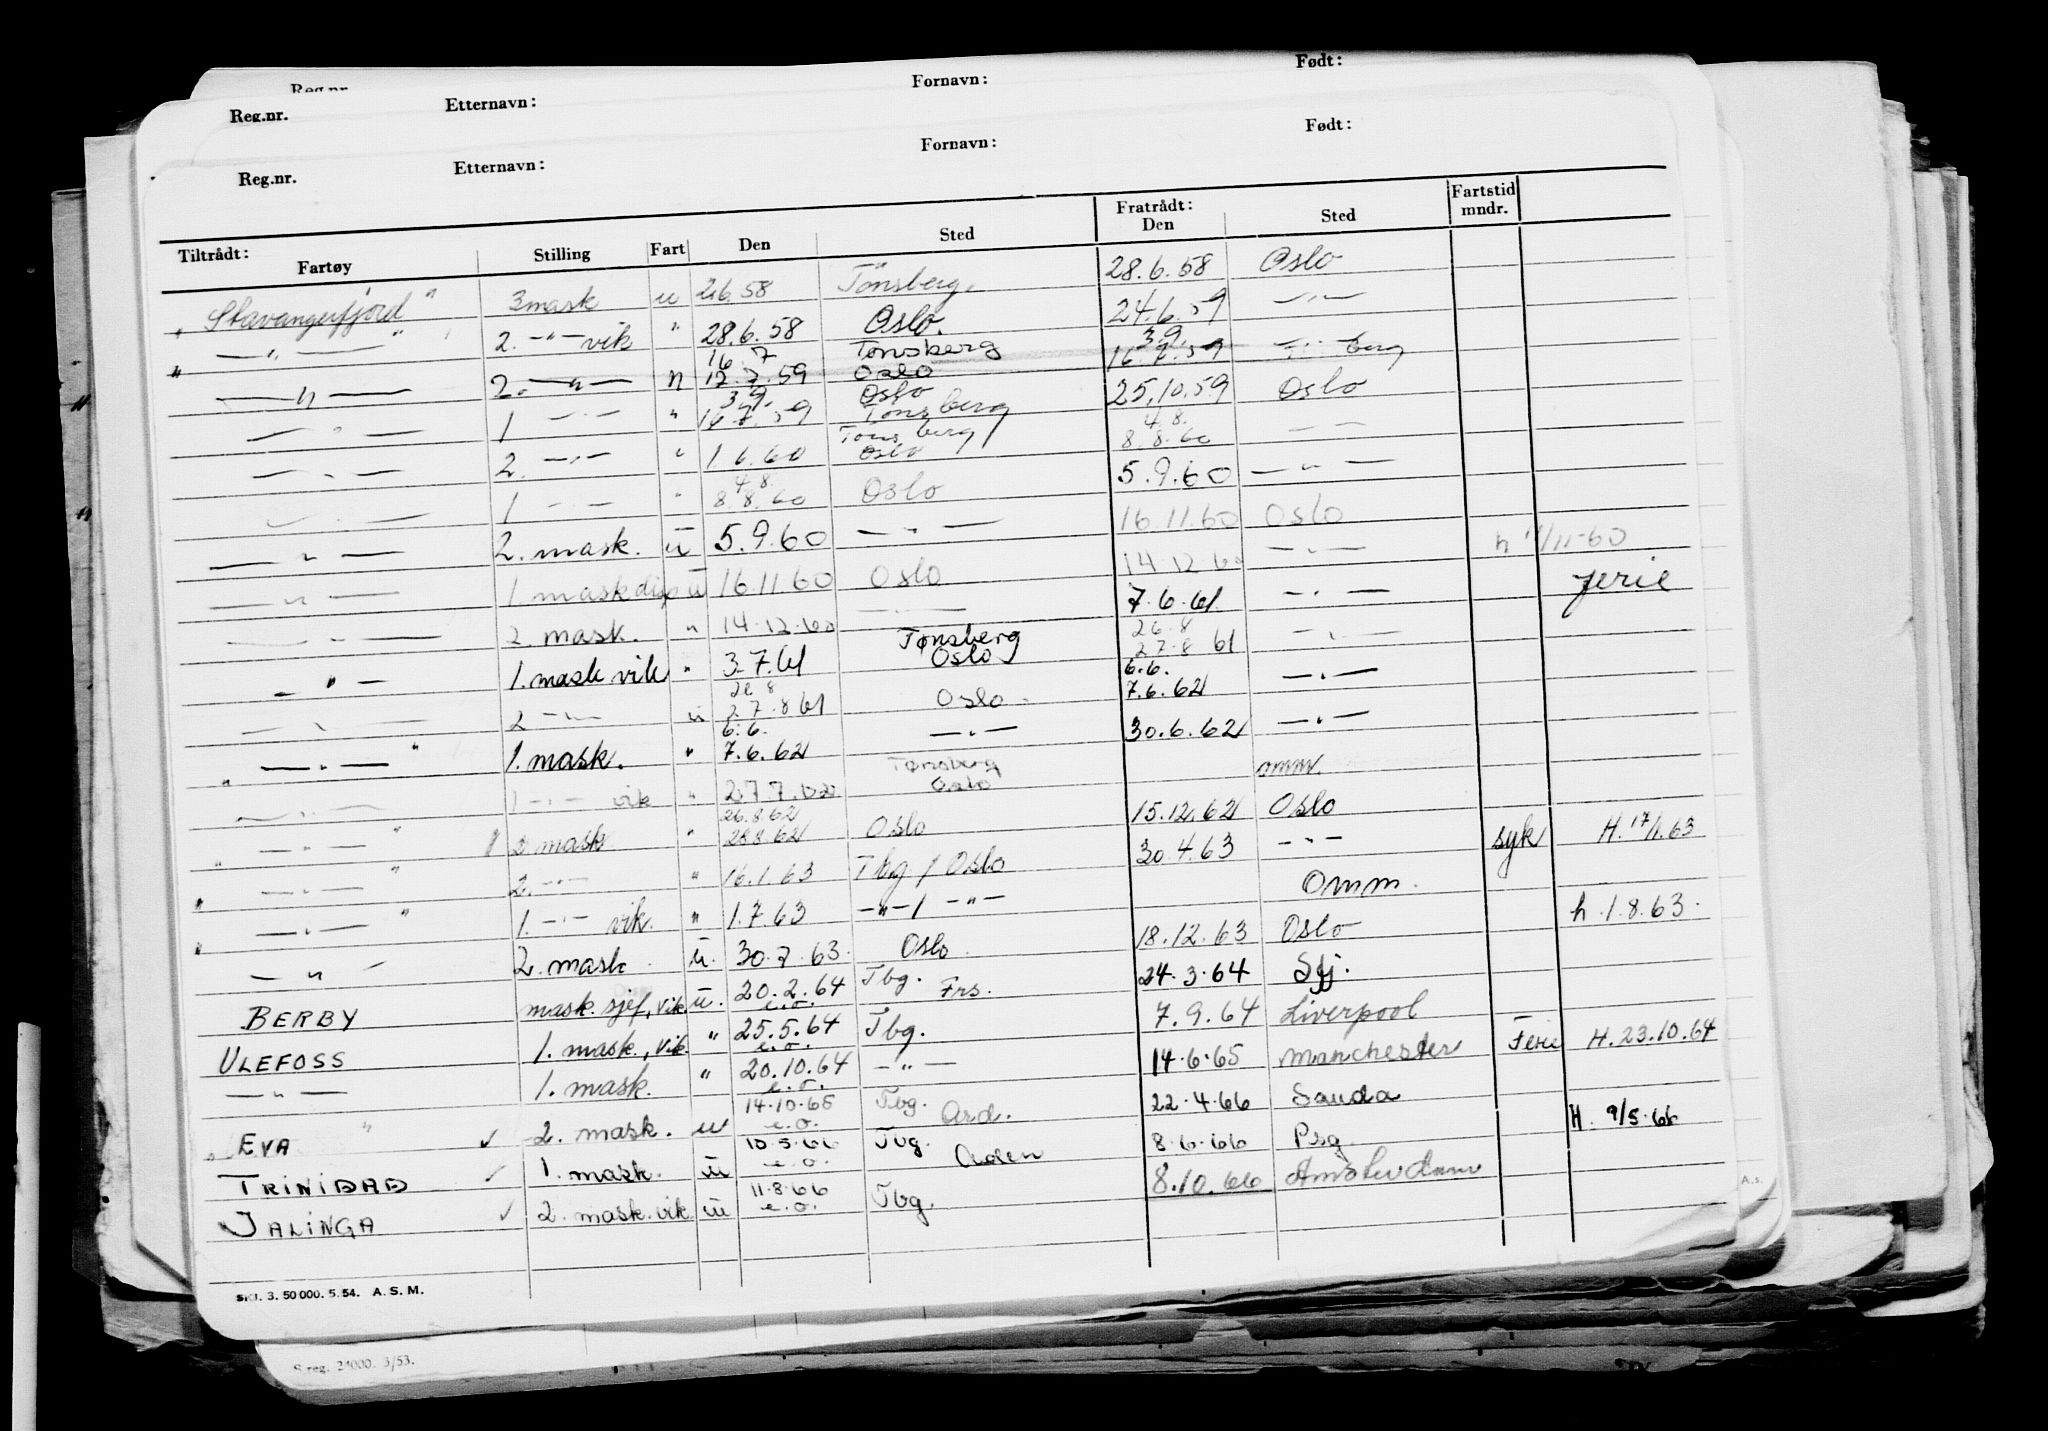 Reg.nr. Fornavn: Født:
Reg.nr. Etternavn:
Fornavn: Født:
Reg.nr. Etternavn:
Tiltrådt: Fartøy Stilling Fart Den Sted Fratrådt: Den Sted Fartstid mndr.
" Stavangerfjord " 3 mask u 2.6.58 Tønsberg. 28.6.58 Oslo
" —"— " 2. —"— vik " 28.6.58 Oslo. 24.6.59 —"—
16 7 Tønsberg 3 9.
—"— 2. —"— n 12.7.59 Oslo 16. .59 berg
3 9. Oslo
—"— 1 —"— " 16. .59 Tønsberg 25.10.59 Oslo
Tønsberg 4.8.
—"— 2. —"— " 1 6.60 Oslo 8.8.60 —"—
4.8.
—"— 1 —"— " 8.8.60 Oslo 5.9.60 —"—
—"— 2. mask. u 5.9.60 —"— 16.11.60 Oslo
—"— 1. mask disp u 16.11.60 Oslo 14.12.60 —"— h 11/11-60
—"— 2. mask. " 14.12.60 —"— 7.6.61 —"— ferie
Tønsberg 26.8
—"— 1. mask vik " 3.7.61 Oslo 27.8 61 —"—
26 8 6.6.
—"— 2 —"— u 27.8 61 Oslo 7.6.62 —"—
6.6.
" —"— " 1. mask. " 7.6.62 —"— 30.6.62 —"—
Tønsberg
—"— 1 —"— vik " 27.7.62 Oslo omm.
26.8.62
" —"— " 2 mask " 28.8.62 Oslo 15.12.62 Oslo
" —"— " 2. —"— " 16.1.63 Tbg / Oslo 30.4.63 —"— syk H. 17/1.63
" —"— " 1. —"— vik. " 1.7.63 —"— / —"— Omm.
—"— 2. mask. u. 30.7.63. Oslo. 18.12.63 Oslo h.1.8.63.
BERBY mask.sjef, vik. u. 20.2.64 e.o. Tbg. Frs. 24.3.64 Sfj.
ULEFOSS 1. mask., vik. " 25.5.64 e.o. Tbg. 7.9.64 Liverpool
—"— 1. mask. " 20.10.64 e.o. —"— 14.6.65 Manchester Ferie H.23.10.64
" EVA " ✓ 2. mask. u 14.10.65 e.o. Tbg. Ard. 22.4.66 Sauda
TRINIDAD ✓ 1. mask. u 10.5.66 e.o. Tbg. Aden 8.6.66 Psg. H. 9/5.66
JALINGA ✓ 2. mask. vik. u 11.8.66 e.o. Tbg. 8.10.66 Amsterdam
Skj. 3. 50 000. 5.54. A. S. M.
A.s.
S-reg. 24000. 3/53.